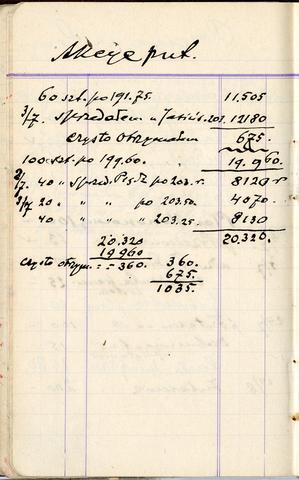 Akcye put.
60 szt. po 191.75. 11.505
3/7. sprzedałem u 203. 12180
czysto otrzymałem 675.
100 szt. po 199.60. 19.960.
2/7. 40 " sprzed. po 203. r. 8120 r
3/7 20 " " " po 203.50. 4070.
40 " " " 203.25. 8130
20.320 20.320.
19960
czysto otrzym. = 360. 360.
675.
1035.